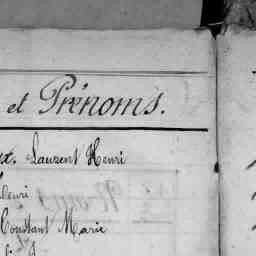 et Prénoms.
Laurent Henri
Henri
Constant Marie